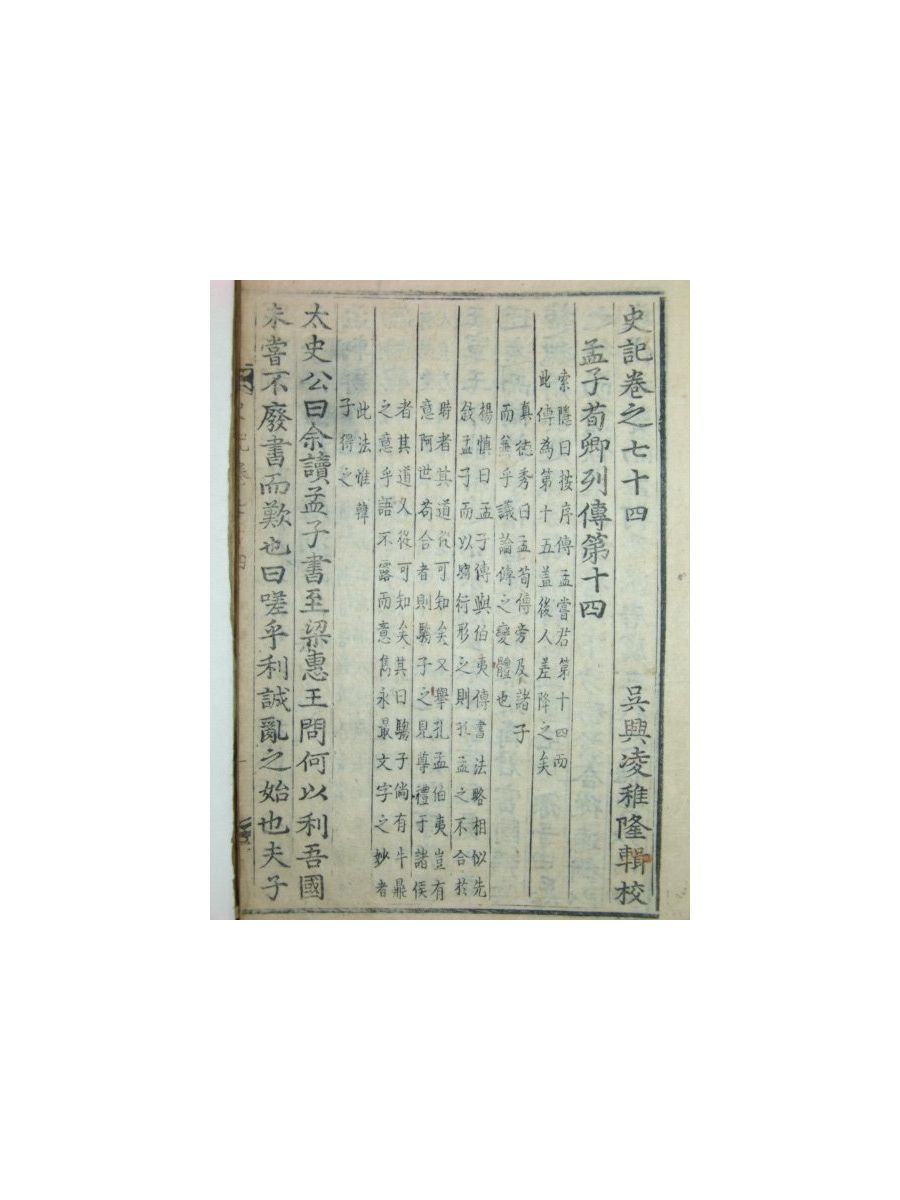 史記卷之七十四
吳興凌稚隆輯校
孟子荀卿列傳第十四
索隱曰按序傳孟嘗君第十四而
此傳為第十五盖後人差降之矣
真德秀曰孟荀傳旁及諸子
而兼乎議論傳之變體也
楊慎曰孟子傳與伯夷傳書法略相似先
敘孟子而以騶衍形之則孔孟之不合於
時者其道從可知矣又舉孔孟伯夷豈有
意阿世苟合者則騶子之見尊禮于諸侯
者其道又從可知矣其曰騶子倘有牛鼎
之意乎語不露而意雋永最文字之妙者
此法惟韓
子得之
太史公曰余讀孟子書至梁惠王問何以利吾國
未嘗不廢書而歎也曰嗟乎利誠亂之始也夫子